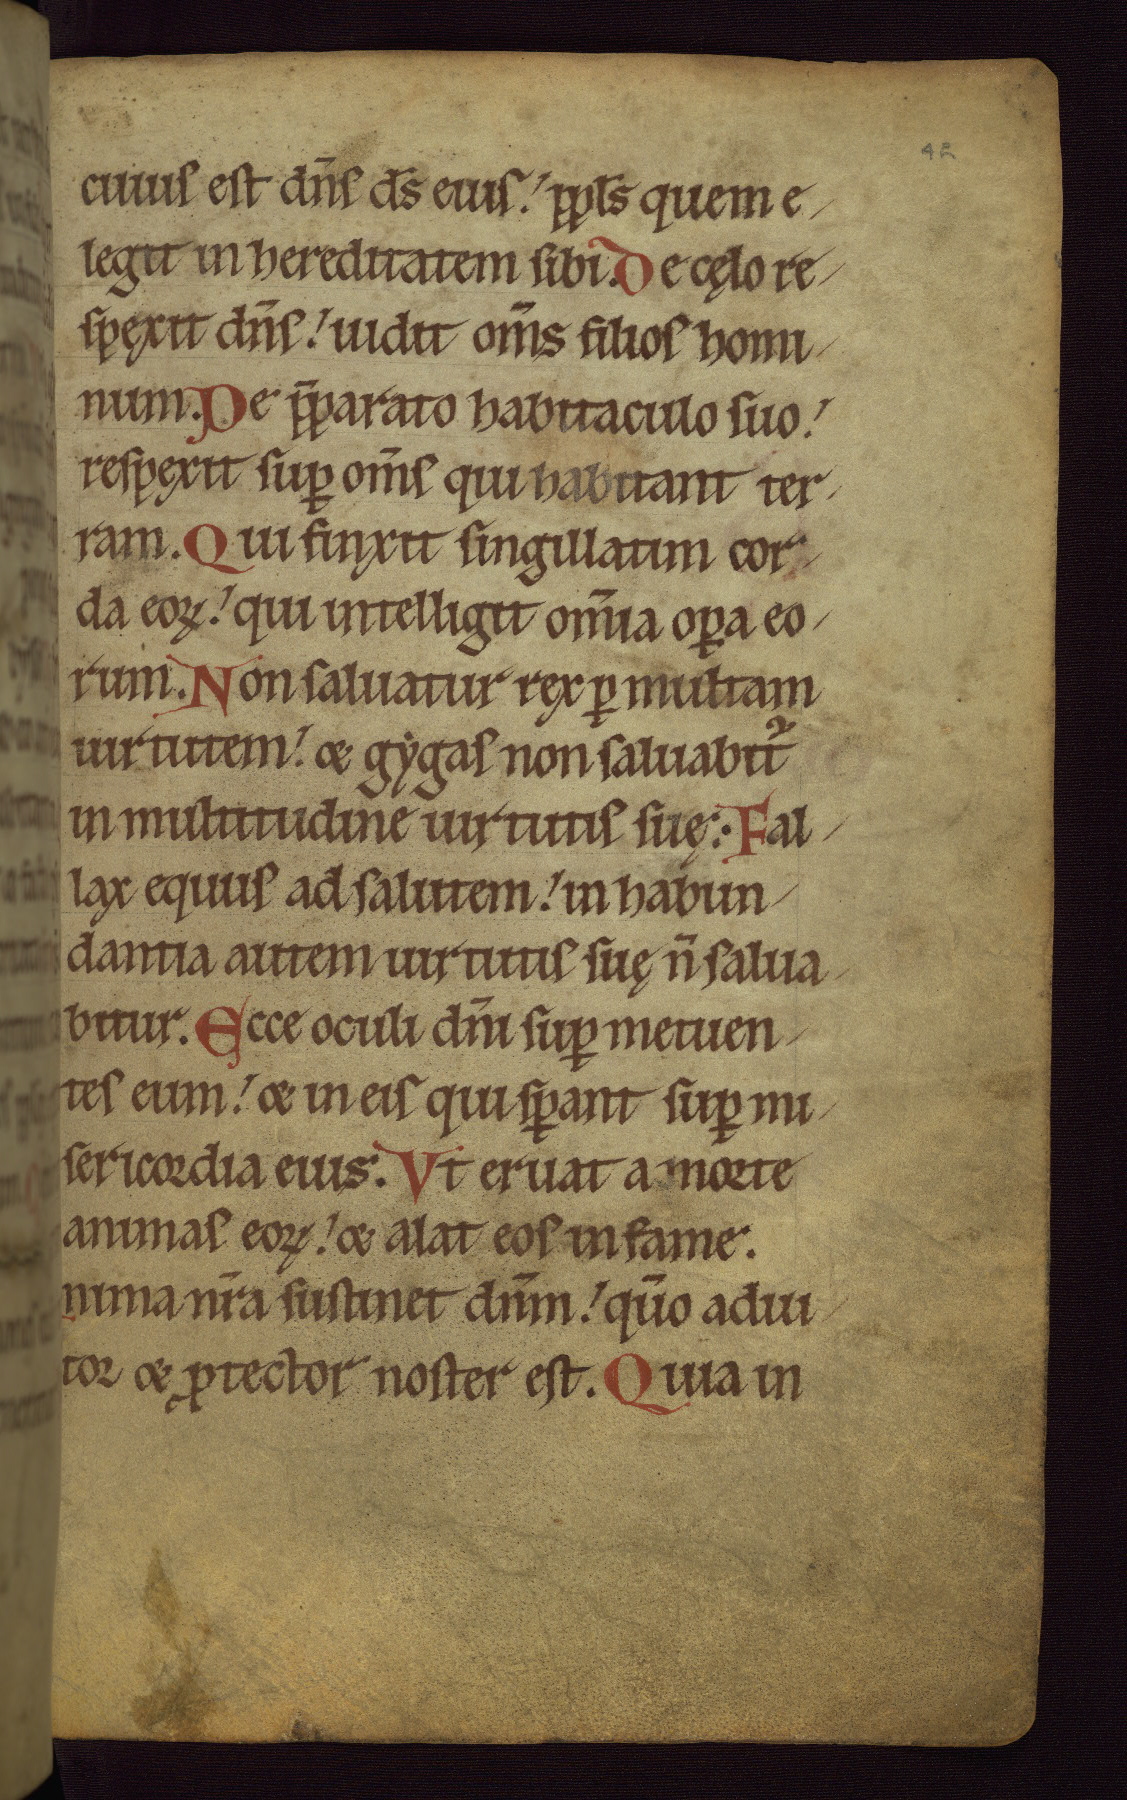 42
cuius est dn̄s ds̄ eius! ppl̄s quem e
legit in hereditatem sibi. De cęlo re
spexit dn̄s! uidit om̄s filios homi
num. De p̄parato habitaculo suo!
respexit sup̱ om̄s qui habitant ter
ram. Qui finxit singillatim cor
da eoꝝ! qui intelligit om̄ia op̱a eo
rum. Non saluatur rex p̱ multam
uirtutem! & gẏgas non saluabit᷑
in multitudine uirtutis suę. Fal
lax equus ad salutem! in habun
dantia autem uirtutis suę n̄ salua
bitur. Ecce oculi dn̄i sup̱ metuen
tes eum! & in eis qui sp̱ant sup̱ mi
sericordia eius. Vt eruat a morte
animas eoꝝ! & alat eos in fame.
nima nr̄a sustinet dn̄m! qm̄o adiu
tor & ꝓtector noster est. Quia in